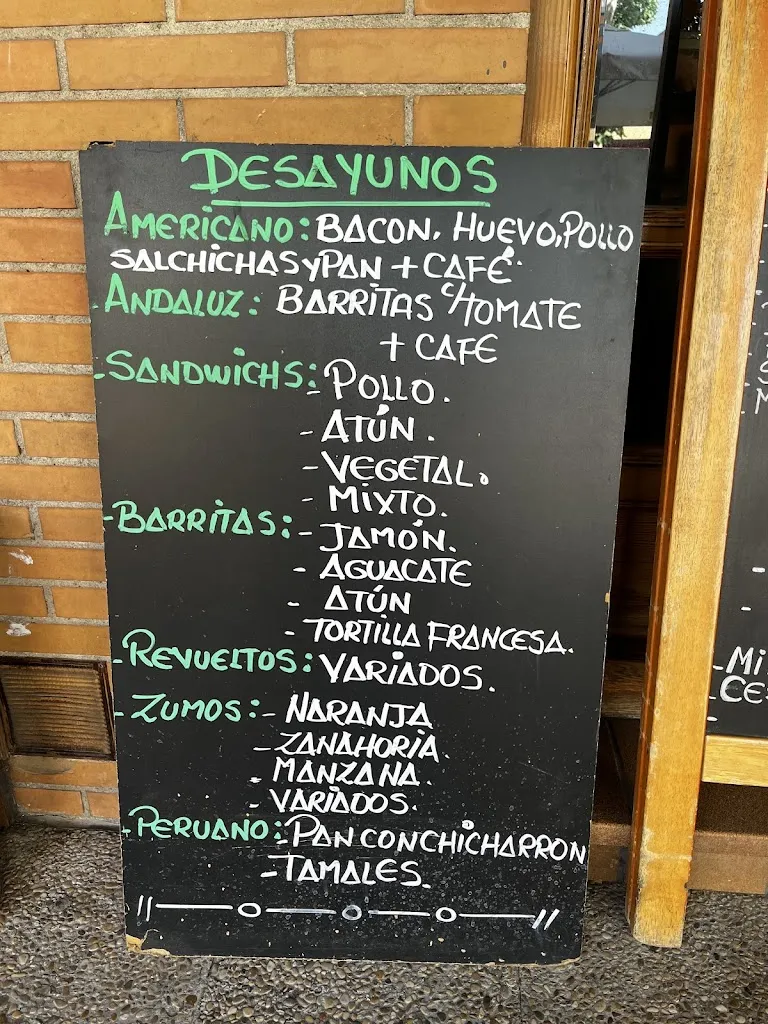 DESAYUNOS
AMERICANO: BACON, HUEVO, POLLO
SALCHICHAS Y PAN + CAFÉ
- ANDALUZ: BARRITAS C/TOMATE
+ CAFE
- SANDWICHS: - POLLO.
- ATÚN.
- VEGETAL.
- MIXTO.
- BARRITAS: - JAMÓN.
- AGUACATE
- ATÚN
- TORTILLA FRANCESA.
- REVUELTOS: VARIADOS.
- ZUMOS: - NARANJA
- ZANAHORIA
- MANZANA.
- VARIADOS.
- PERUANO: - PAN CON CHICHARRON
- TAMALES.